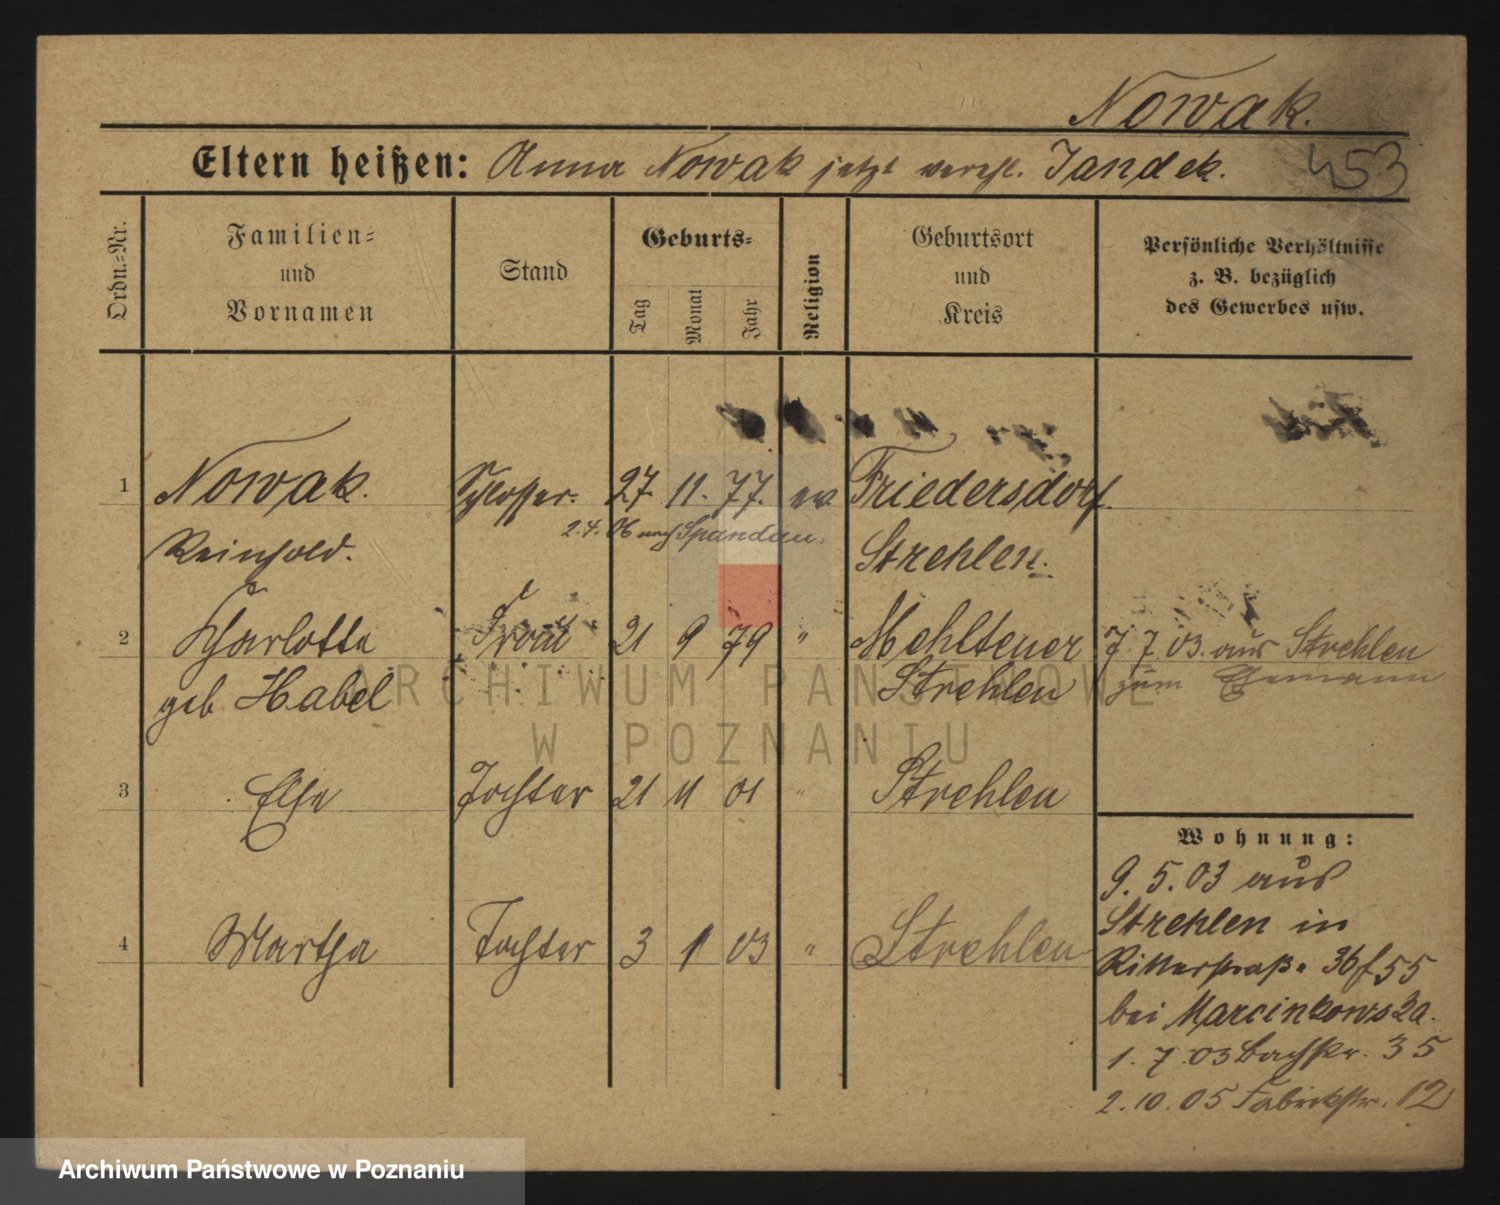 Nowak.
Eltern heißen: Anna Nowak jetzt verehl. Jandek.
453
Ordn.-Nr.
Familien-
und
Vornamen
Stand
Geburts-
Tag
Monat
Jahr
Religion
Geburtsort
und
Kreis
Persönliche Verhältnisse
z. B. bezüglich
des Gewerbes usw.
1 Nowak. Schlosser. 27. 11. 77. ev. Friedersdorf.
2.4.06 nach Spandau.
Reinhold. Strehlen.
2 Charlotte Frau 21 9 79 " Mehlteuer 7.7.03. aus Strehlen
geb. Habel Strehlen zum Ehemann
3 Else Tochter 21 11 01 " Strehlen
Wohnung:
9.5.03 aus
Strehlen in
4 Martha Tochter 3 1 03 " Strehlen
Ritterstraße 36 f 55
bei Marcinkowska.
1.7.03 Bachstr. 35
2.10.05 Fabrikstr. 12
ARCHIWUM PAŃSTWOWE
W POZNANIU
Archiwum Państwowe w Poznaniu